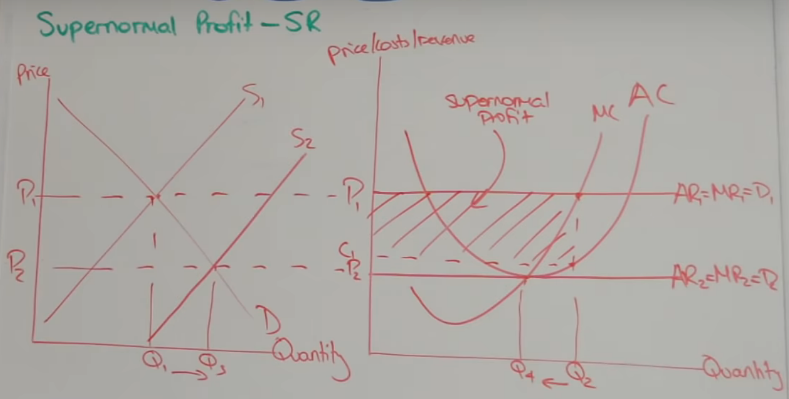 Supernormal Profit – SR
Price
S₁
S₂
P₁
P₂
D
Q₁ → Q₃
Quantity
Price/costs/revenue
Supernormal
Profit
MC
AC
P₁
C₁
P₂
AR₁=MR₁=D₁
AR₂=MR₂=D₂
Q₄ ← Q₂
Quantity